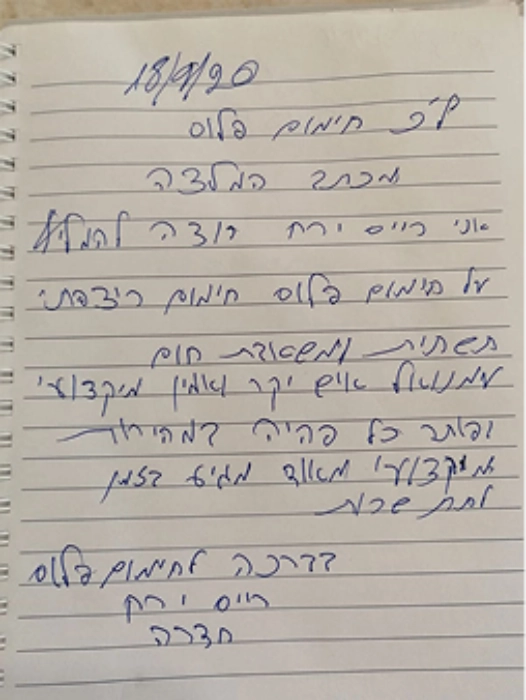 18/9/20
ל"כ חימום פלוס
מכתב המלצה
אני חיים ירח רוצה להמליץ
על חימום פלוס חימום ריצפתי
תשתית ומשאבת חום
עמנואל איש יקר ואמין מיקצועי
ופותר כל בהירות
מקצועי מאוד מגיע בזמן
לתת שרות
בברכה לחימום פלוס
חיים ירח
חדרה